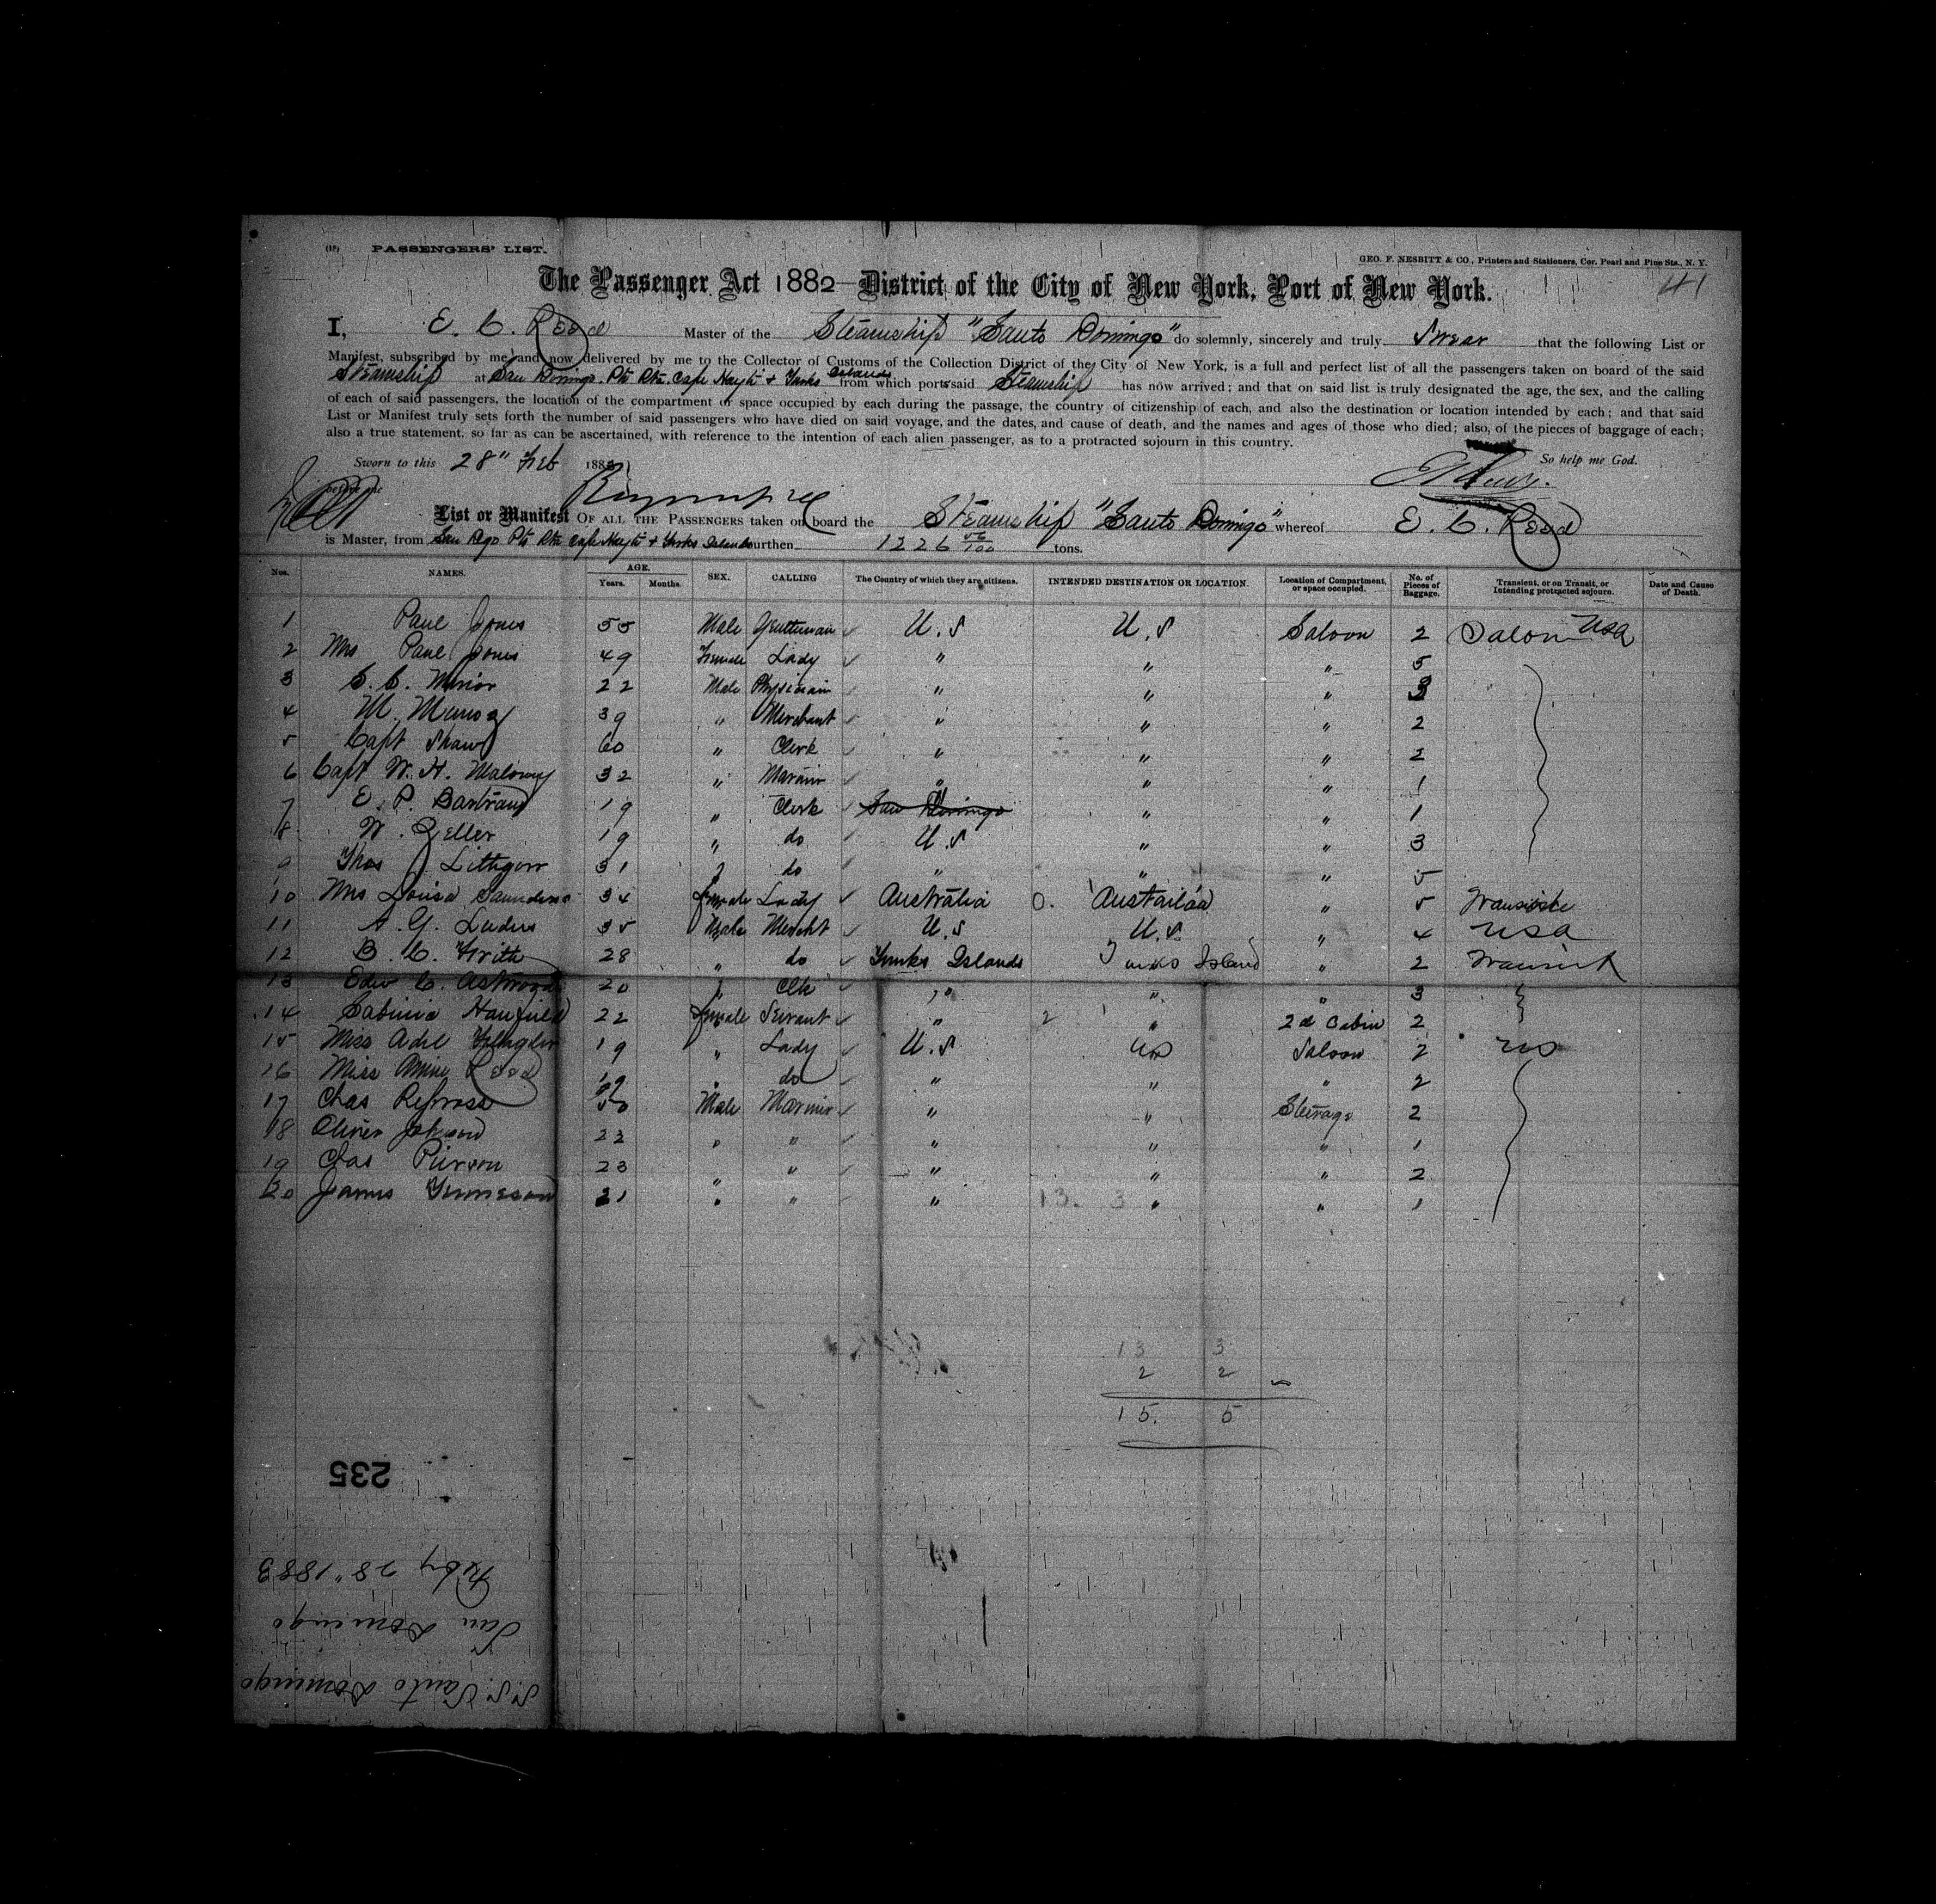 (12) PASSENGERS' LIST.
GEO. F. NESBITT & CO., Printers and Stationers, Cor. Pearl and Pine Sts., N. Y.
41
The Passenger Act 1882 District of the City of New York, Port of New York.
I, E. C. Reed Master of the Steamship "Santo Domingo" do solemnly, sincerely and truly Swear that the following List or
Manifest, subscribed by me and now delivered by me to the Collector of Customs of the Collection District of the City of New York, is a full and perfect list of all the passengers taken on board of the said
Steamship at San Domingo. Pto Pta. Cape Hayti + Turks Islands from which ports said Steamship has now arrived; and that on said list is truly designated the age, the sex, and the calling
of each of said passengers, the location of the compartment or space occupied by each during the passage, the country of citizenship of each, and also the destination or location intended by each; and that said
List or Manifest truly sets forth the number of said passengers who have died on said voyage, and the dates, and cause of death, and the names and ages of those who died; also, of the pieces of baggage of each;
also a true statement, so far as can be ascertained, with reference to the intention of each alien passenger, as to a protracted sojourn in this country.
Sworn to this 28" Feb 188 So help me God.
before me
List or Manifest OF ALL THE PASSENGERS taken on board the Steamship "Santo Domingo" whereof E. C. Reed
is Master, from San Dgo Pto Pta Cape Hayti + Turks Islands burthen 1226 56/100 tons.
Nos. NAMES. AGE. Years. Months. SEX. CALLING The Country of which they are citizens. INTENDED DESTINATION OR LOCATION. Location of Compartment, or space occupied. No. of Pieces of Baggage. Transient, or on Transit, or Intending protracted sojourn. Date and Cause of Death.
1 Paul Jones 55 Male Gentleman U.S U.S Saloon 2 Salon USA
2 Mrs Paul Jones 49 Female Lady " " " 5
3 S. C. Minor 22 Male Physician " " " 3
4 M. 39 " Merchant " " " 2
5 Capt Shaw 60 " Clerk " " " 2
6 Capt W. H. Malony 32 " Marin " " " 1
7 E. P. Bartram 19 " Clerk San Domingo " " 1
8 W. Zeller 19 " do U.S " " 3
9 Thos J Lithgow 31 " do " " " 5
10 Mrs Louisa Saunders 34 female Lady Australia 0. Australia " 5
11 A. G. 35 Male Mercht U.S U.S " 4 USA
12 B. C. Frith 28 " do Turks Islands Turks Island " 2 Transit
13 Edw C. Astwood 20 " Clk " " " 3
14 Sabinia 22 female Servant " 2 " 2d Cabin 2
15 Miss Adel 19 " Lady U.S US Saloon 2 US
16 Miss Annie Reed 19 " do " " " 2
17 Chas 50 Male Marine " " Steerage 2
18 Oliver Johnson 22 " " " " " 1
19 Chas Pierson 23 " " " " " 2
20 James 21 " " " 13. 3 " " 1
13 3
2 2
15. 5
235
Feby 28" 1883
San Domingo
S.S. Santo Domingo